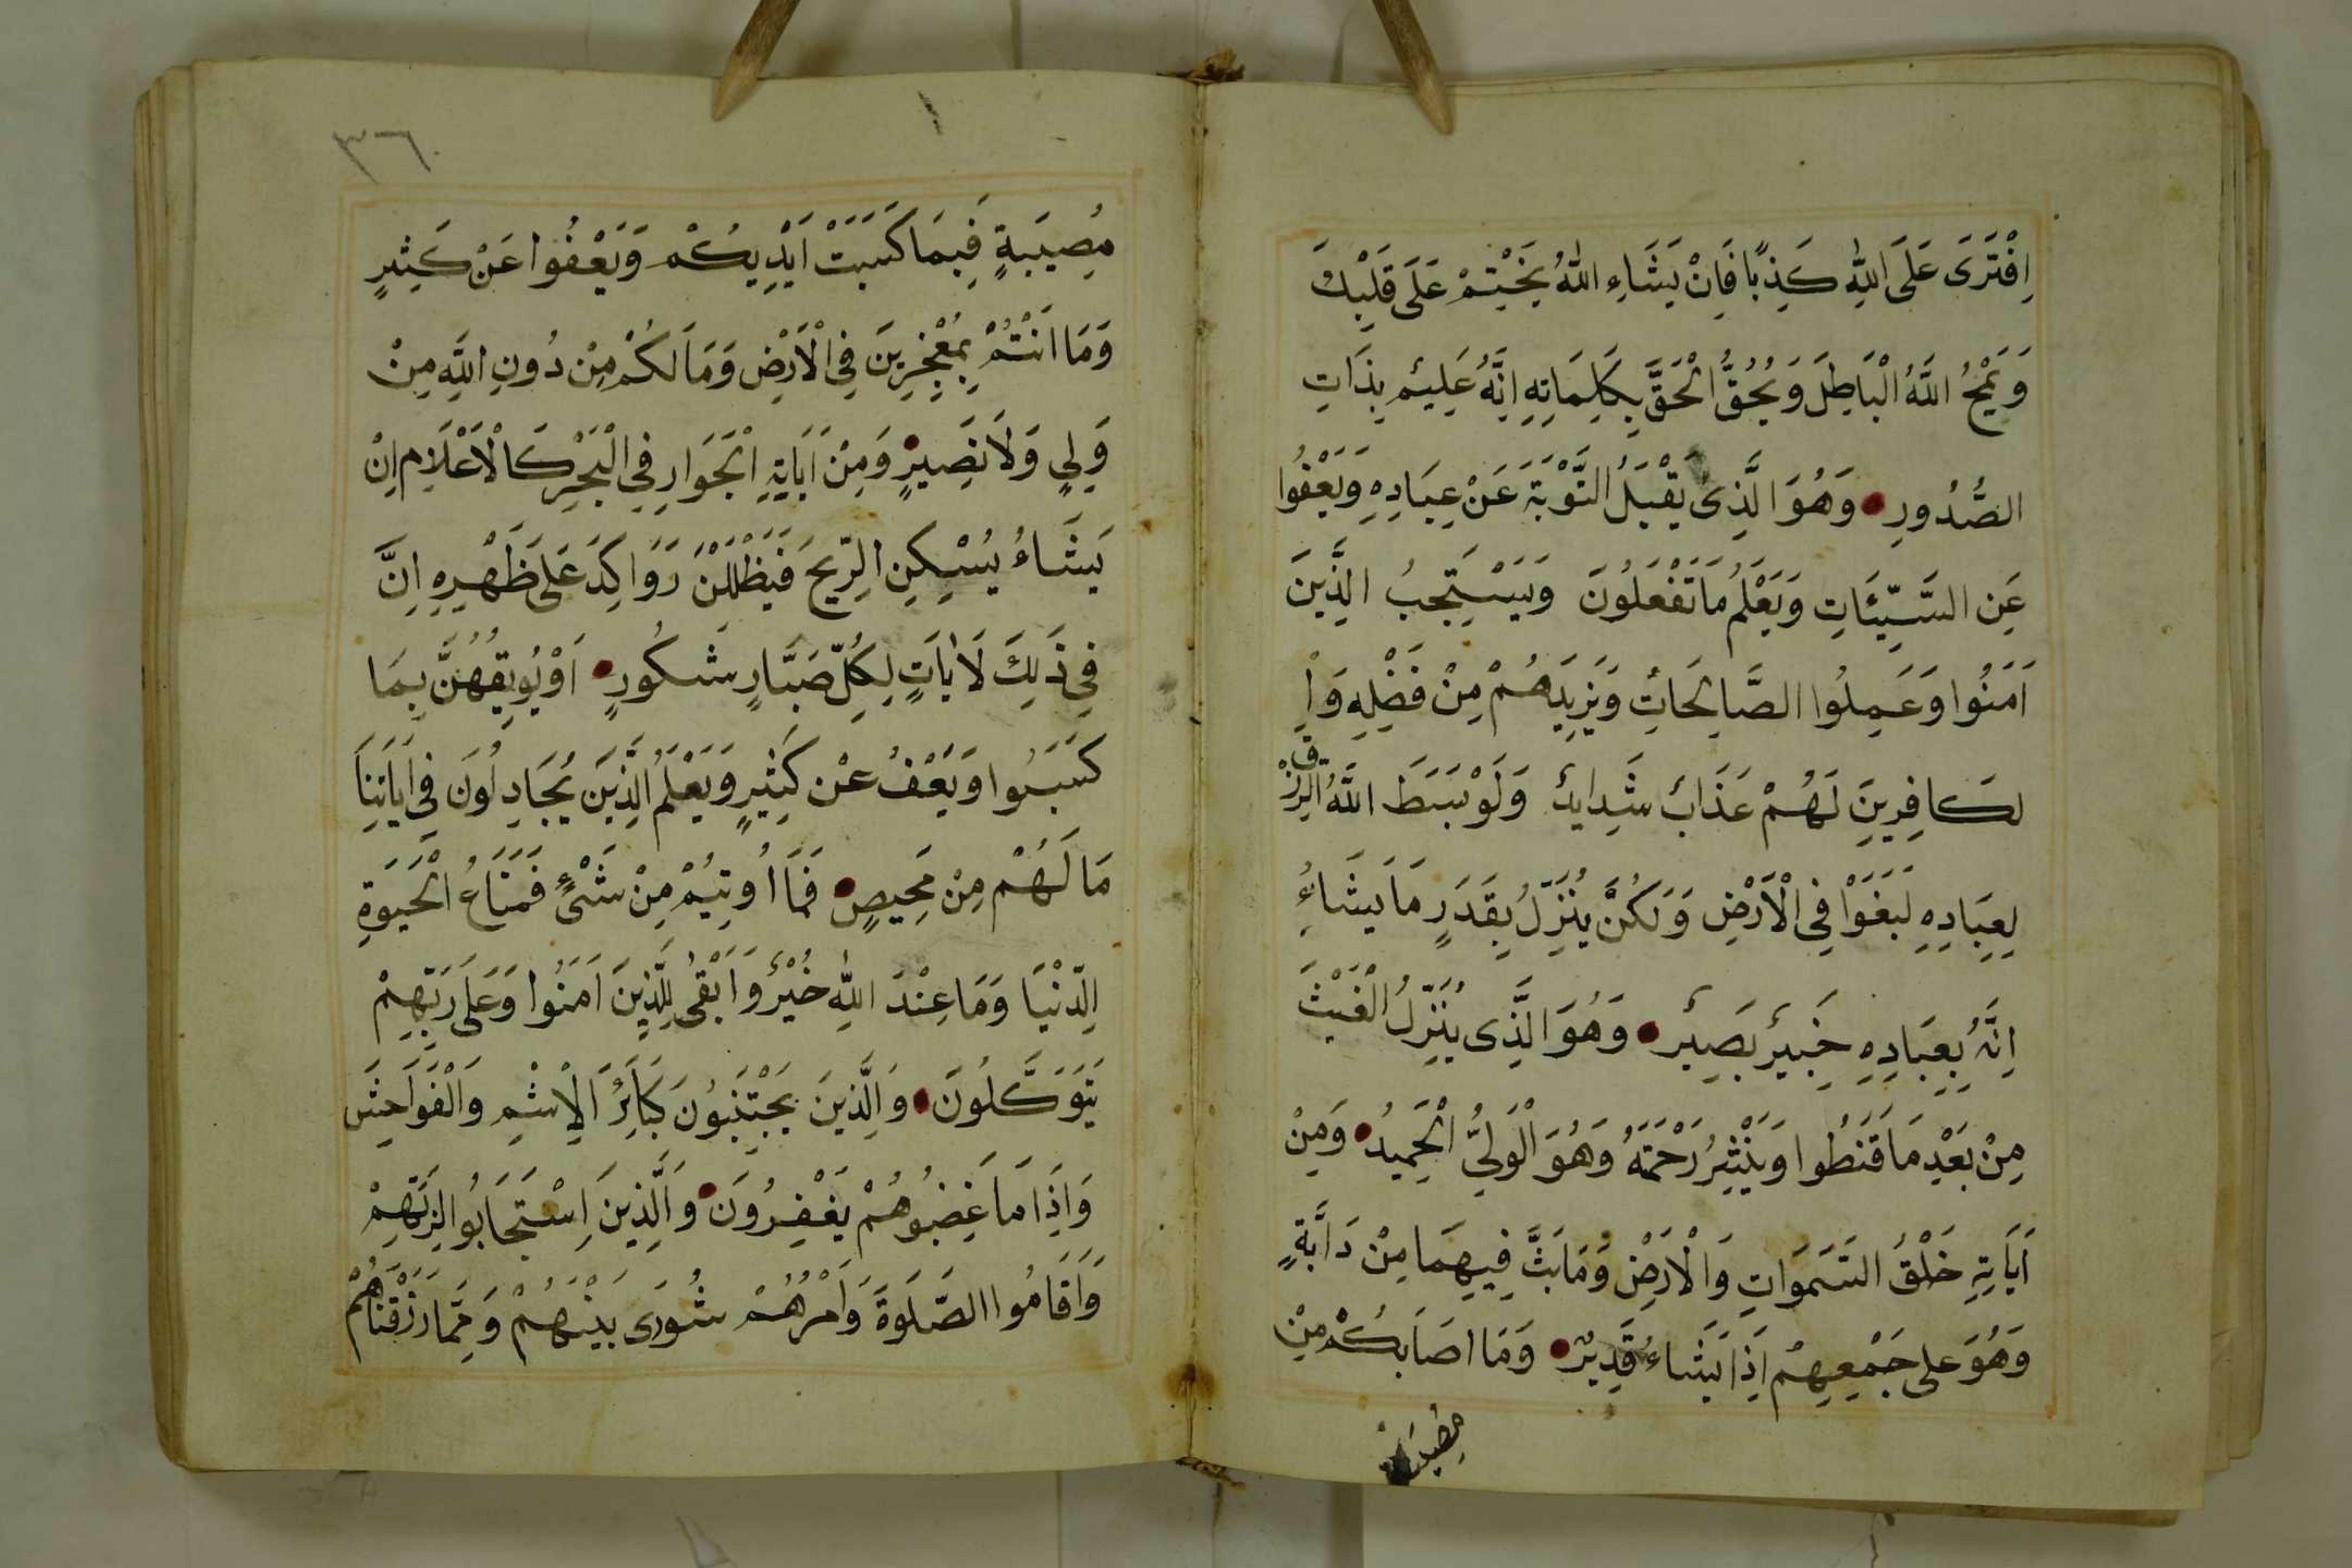 اِفْتَرَى عَلَى اللّٰهِ كَذِبًا فَاِنْ يَشَاءِ اللّٰهُ يَخْتِمْ عَلَى قَلْبِكَ
وَيَمْحُ اللَّهُ الْبَاطِلَ وَيُحُقُّ الْحَقَّ بِكَلِمَاتِهِ اِنَّهُ عَلِيمٌ بِذَاتِ
الصُّدُورِ وَهُوَ الَّذِى يَقْبَلُ التَّوْبَةَ عَنْ عِبَادِهِ وَيَعْفُوا
عَنِ السَّيِّئَاتِ وَيَعْلَمُ مَا تَفْعَلُونَ وَيَسْتَجِبُ الَّذِينَ
اَمَنُوا وَعَمِلُوا الصَّالِحَاتِ وَيَزِيدَهُمْ مِنْ فَضْلِهِ وَاْ
لكَافِرِينَ لَهُمْ عَذَابٌ شَدِيدٌ وَلَوْ بَسَطَ اللَّهُ الرِّزْقَ
لِعِبَادِهِ لَبَغَوْا فِى الْاَرْضِ وَلَكُنَّ يُنَزِّلُ بِقَدَرٍ مَا يَشَاءُ
اِنَّهُ بِعِبَادِهِ خَبِيرٌ بَصِيرٌ وَهُوَ الَّذِى يُنَزِّلُ الْغَيْثَ
مِنْ بَعْدِ مَا قَنَطُوا وَيَنْثِرُ رَحْمَتَهُ وَهُوَ الْوَلِيُّ الْحَمِيدُ وَمِنْ
اَيَاتِهِ خَلْقُ السَّمَوَاتِ وَالْاَرْضِ وَمَا بَثَّ فِيهِمَا مِنْ دَابَّةٍ
وَهُوَ على جَمْعِهِمْ اِذَا يَشَاءُ قَدِيرٌ وَمَا اصَابكُمْ مِنْ
مُصِيبَةٍ فَبِمَا كَسَبَتْ اَيْدِيكُمْ وَيَعْفُوا عَنْ كَثِيرٍ
وَمَا اَنْتُمْ بِمُعْجِزِينَ فِى الْاَرْضِ وَمَا لَكُمْ مِنْ دُونِ اللَّهِ مِنْ
وَلِيٍ وَلَا نَصِيرٍ وَمِنْ اَيَاتِهِ الْجَوَارِ فِى الْبَحْرِ كَالْاَعْلَامِ اِنْ
يَشَاءُ يُسْكِنِ الرِّيحَ فَيَظْلَلْنَ رَوَاكِدَ عَلَى ظَهْرِهِ اِنَّ
فِى ذَلِكَ لَاٰيَاتٍ لِكُلِّ صَبَّارٍ شَكُورٍ اَوْ يُوبِقْهُنَّ بِمَا
كَسَبُوا وَيَعْفُ عَنْ كَثِيرٍ وَيَعْلَمُ الَّذِينَ يُجَادِلُونَ فِى اَيَاتِنَا
مَا لَهُمْ مِنْ مَحِيصٍ فَمَا اُوتِيُمْ مِنْ شَىْءٍ فَمَتَاعُ الْحَيَوةِ
الدُّنْيَا وَمَا عِنْدَ اللّٰهِ خَيْرٌ وَاَبْقٰى لِلَّذِينَ اَمَنُوا وَعَلَى رَبِّهِمْ
يَتَوَكَّلُونَ وَالَّذِينَ يَجْتَنِبُونَ كَبَائِرَ الْاِثْمِ وَالْفَوَاحِشَ
وَاِذَا مَا غَضِبُوهُمْ يَغْفِرُونَ وَالَّذِينَ اِسْتَجَابُوا لِرَبِّهِمْ
وَاَقَامُوا الصَّلَوةَ وَاَمْرُهُمْ شُورَى بَيْنَهُمْ وَمِمَّا رَزَقْنَاهُمْ
٣٦